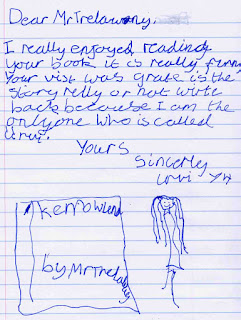 Dear Mr Trelawny,
I really enjoyed reading
your book it is really funny
your visit was grate is the
story relly or not write
back because I am the
only one who is called
Yours
Sincerely
y4
by Mr Trelawny